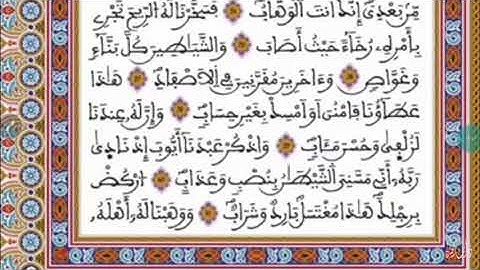 مِّنۢ بَعْدِيٓ إِنَّكَ أَنتَ ٱلْوَهَّابُ فَسَخَّرْنَا لَهُ ٱلرِّيحَ تَجْرِي
بِأَمْرِهِۦ رُخَآءً حَيْثُ أَصَابَ وَٱلشَّيَٰطِينَ كُلَّ بَنَّآءٍ
وَغَوَّاصٍ وَءَاخَرِينَ مُقَرَّنِينَ فِي ٱلْأَصْفَادِ هَٰذَا
عَطَآؤُنَا فَٱمْنُنْ أَوْ أَمْسِكْ بِغَيْرِ حِسَابٍ وَإِنَّ لَهُۥ عِندَنَا
لَزُلْفَىٰ وَحُسْنَ مَـَٔابٍ وَٱذْكُرْ عَبْدَنَآ أَيُّوبَ إِذْ نَادَىٰ
رَبَّهُۥٓ أَنِّي مَسَّنِيَ ٱلشَّيْطَٰنُ بِنُصْبٍ وَعَذَابٍ ٱرْكُضْ
بِرِجْلِكَ هَٰذَا مُغْتَسَلٌۢ بَارِدٌ وَشَرَابٌ وَوَهَبْنَا لَهُۥٓ أَهْلَهُۥ